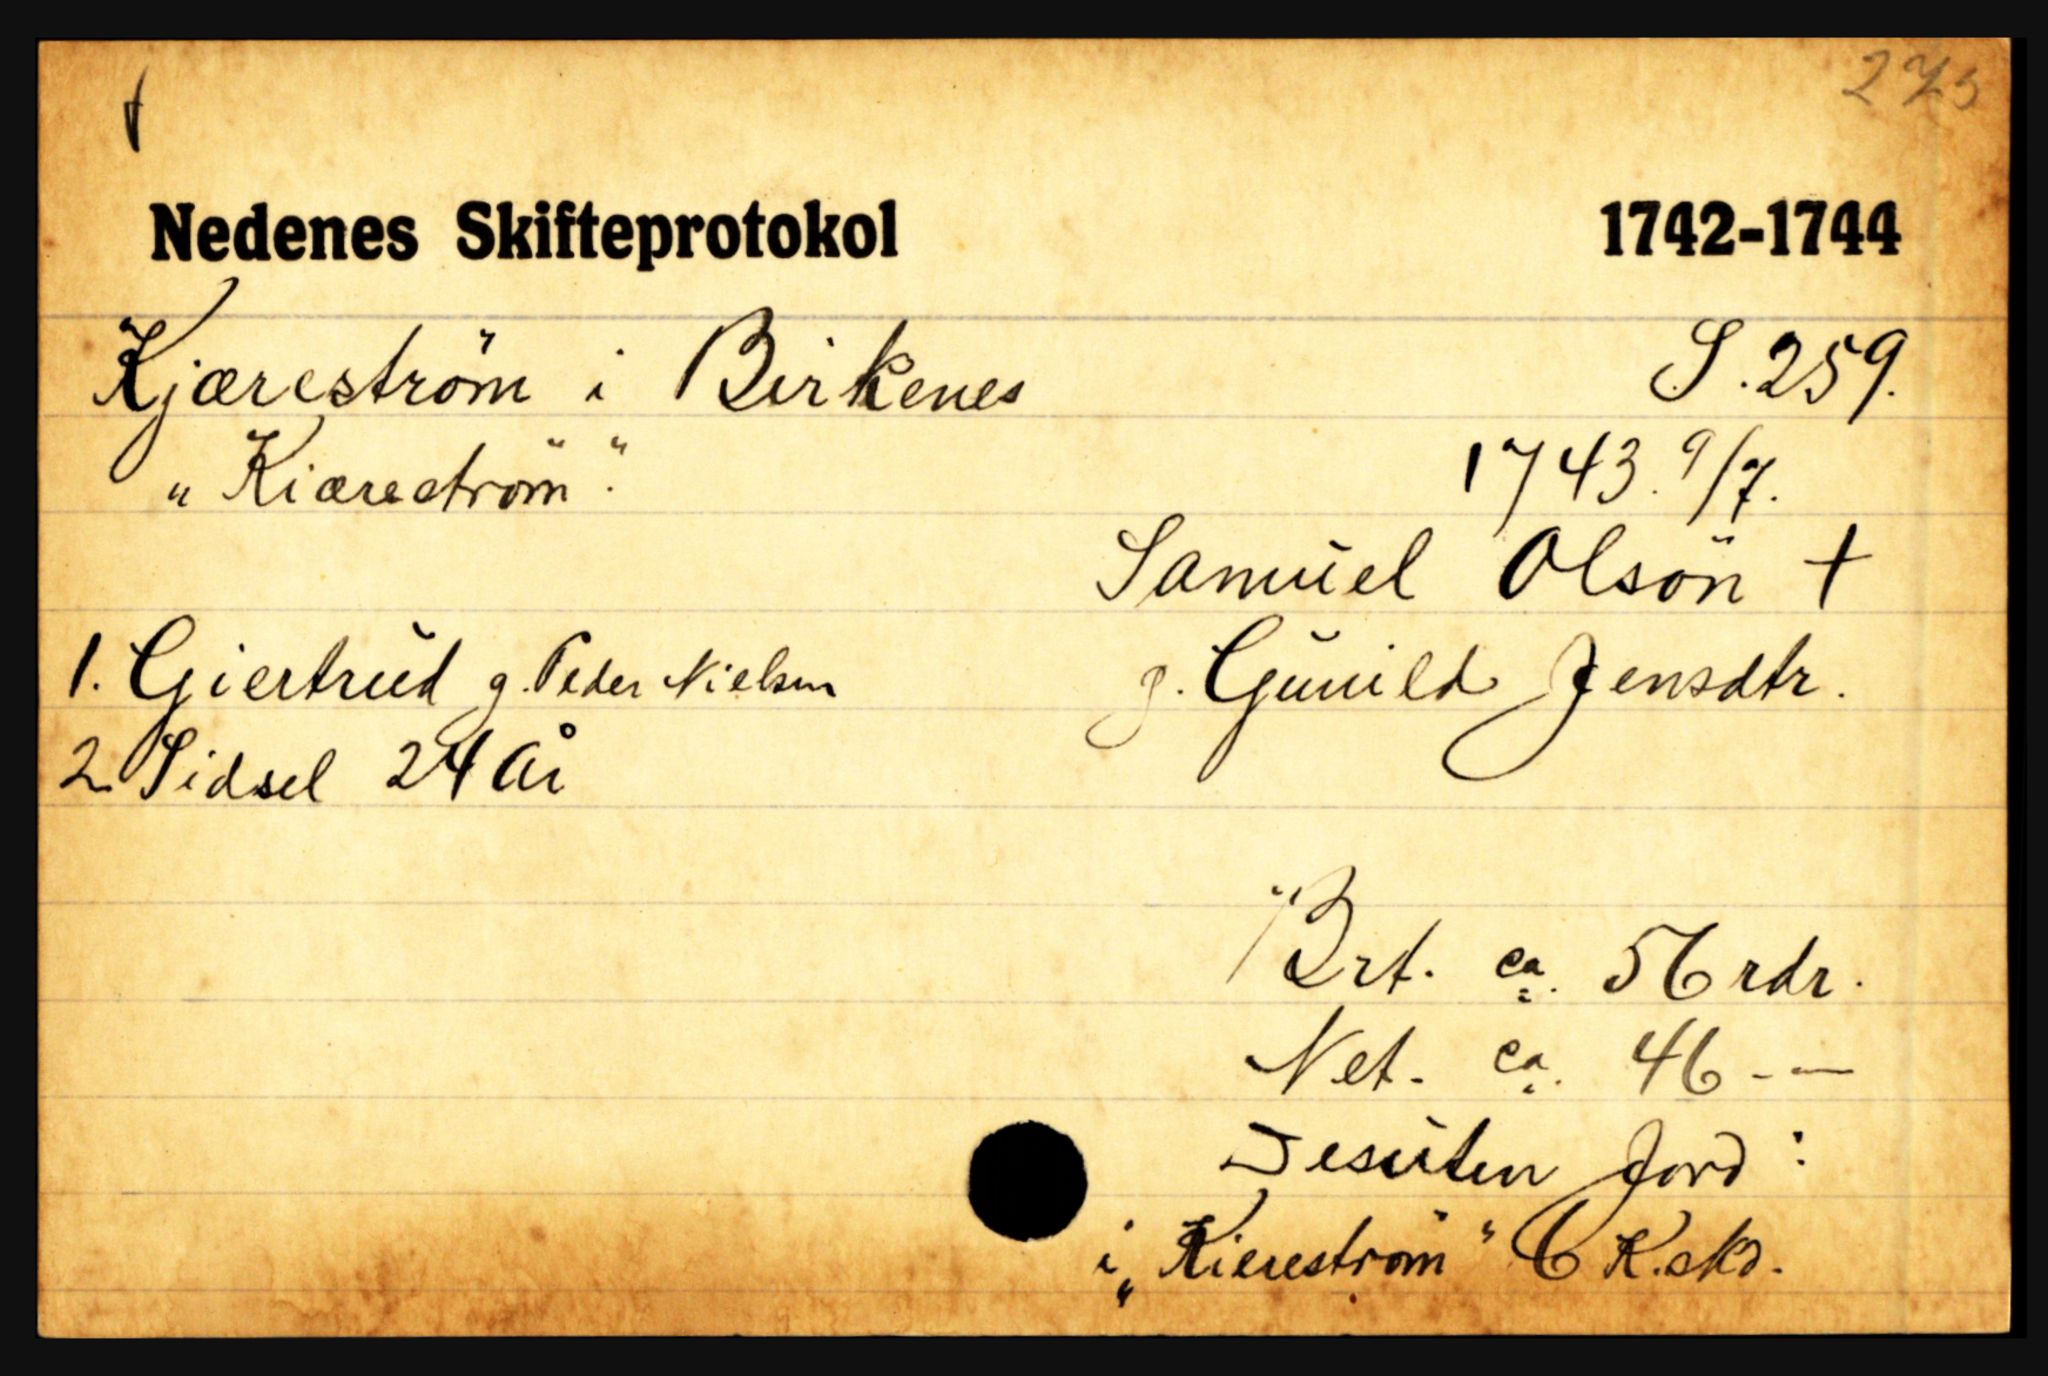 275
Nedenes Skifteprotokol 1742-1744
Kjæreström i Birkenes S. 259.
"Kiæreström". 1743. 9/7.
Samuel Olsön +
1. Giertrud g. Peder Nielsen g. Gunild Jensdtr.
2. Sidsel 24 år
Brt. ca. 56 rdr.
Net. ca. 46 - —
Desuten Jord:
i "Kiereström" 6 K.skd.